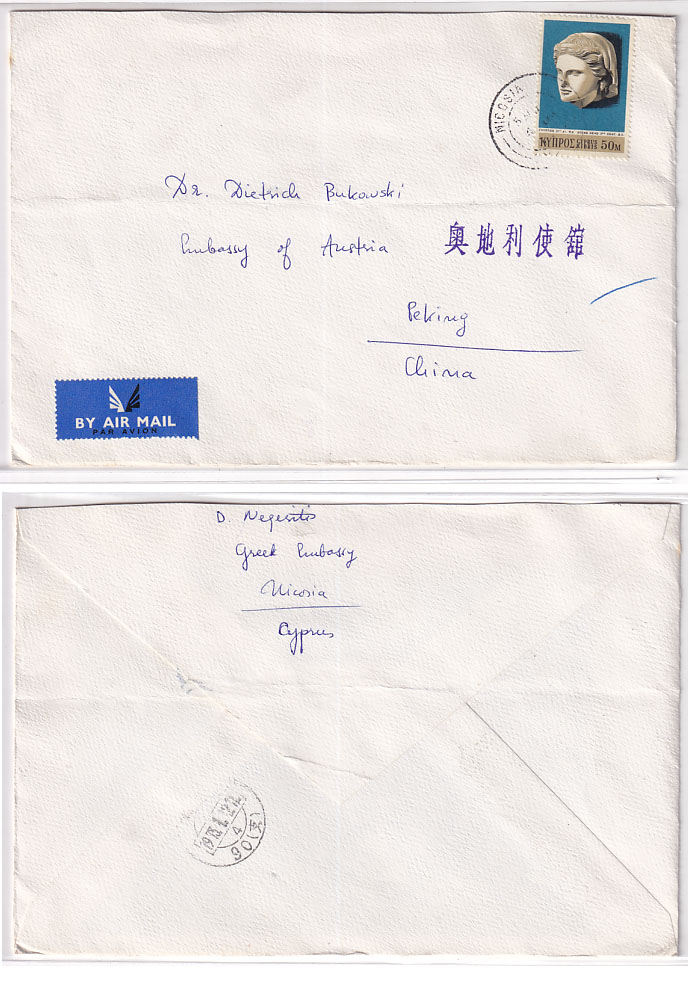 NICOSIA
ΚΥΠΡΟΣ CYPRUS KIBRIS 50M
Dr. Dietrich Bukowski
Embassy of Austria 奥地利使館
Peking
China
BY AIR MAIL
PAR AVION
D. Negesitis
Greek Embassy
Nicosia
Cyprus